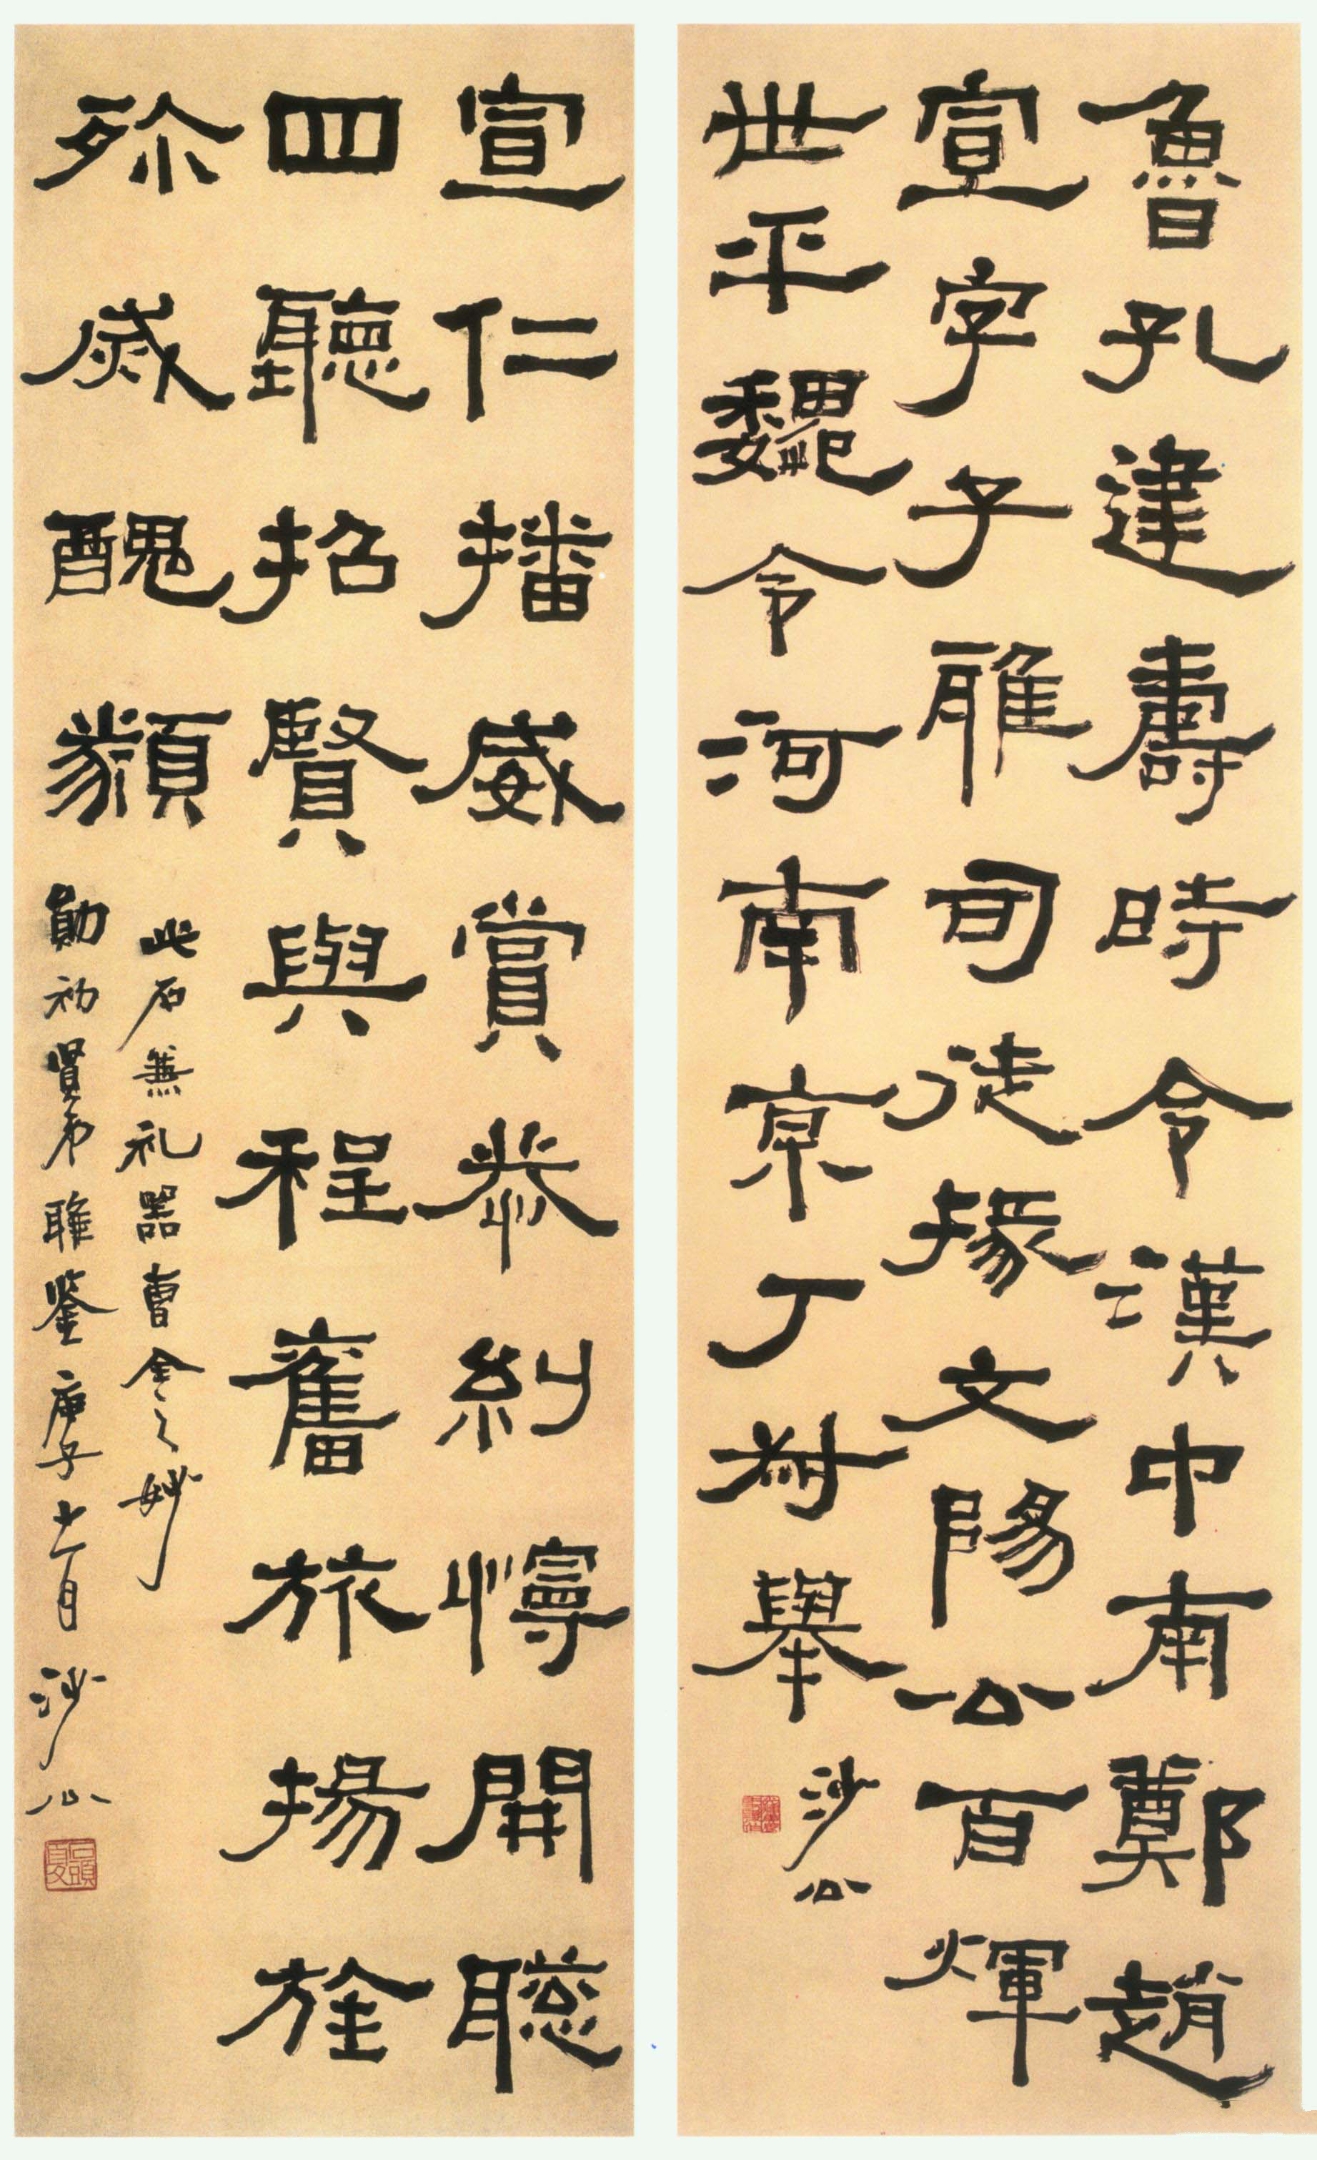 魯孔建壽時令漢中南鄭趙
宣字子雅司徒掾文陽公百輝
世平魏令河南京丁叔舉
沙公
宣仁播威賞恭糾懧開聰
四聽招賢與程舊旅揚旌
殄烕醜類
此石兼礼器曹全之妙
勛初賢弟雅鑒庚子十一月沙公